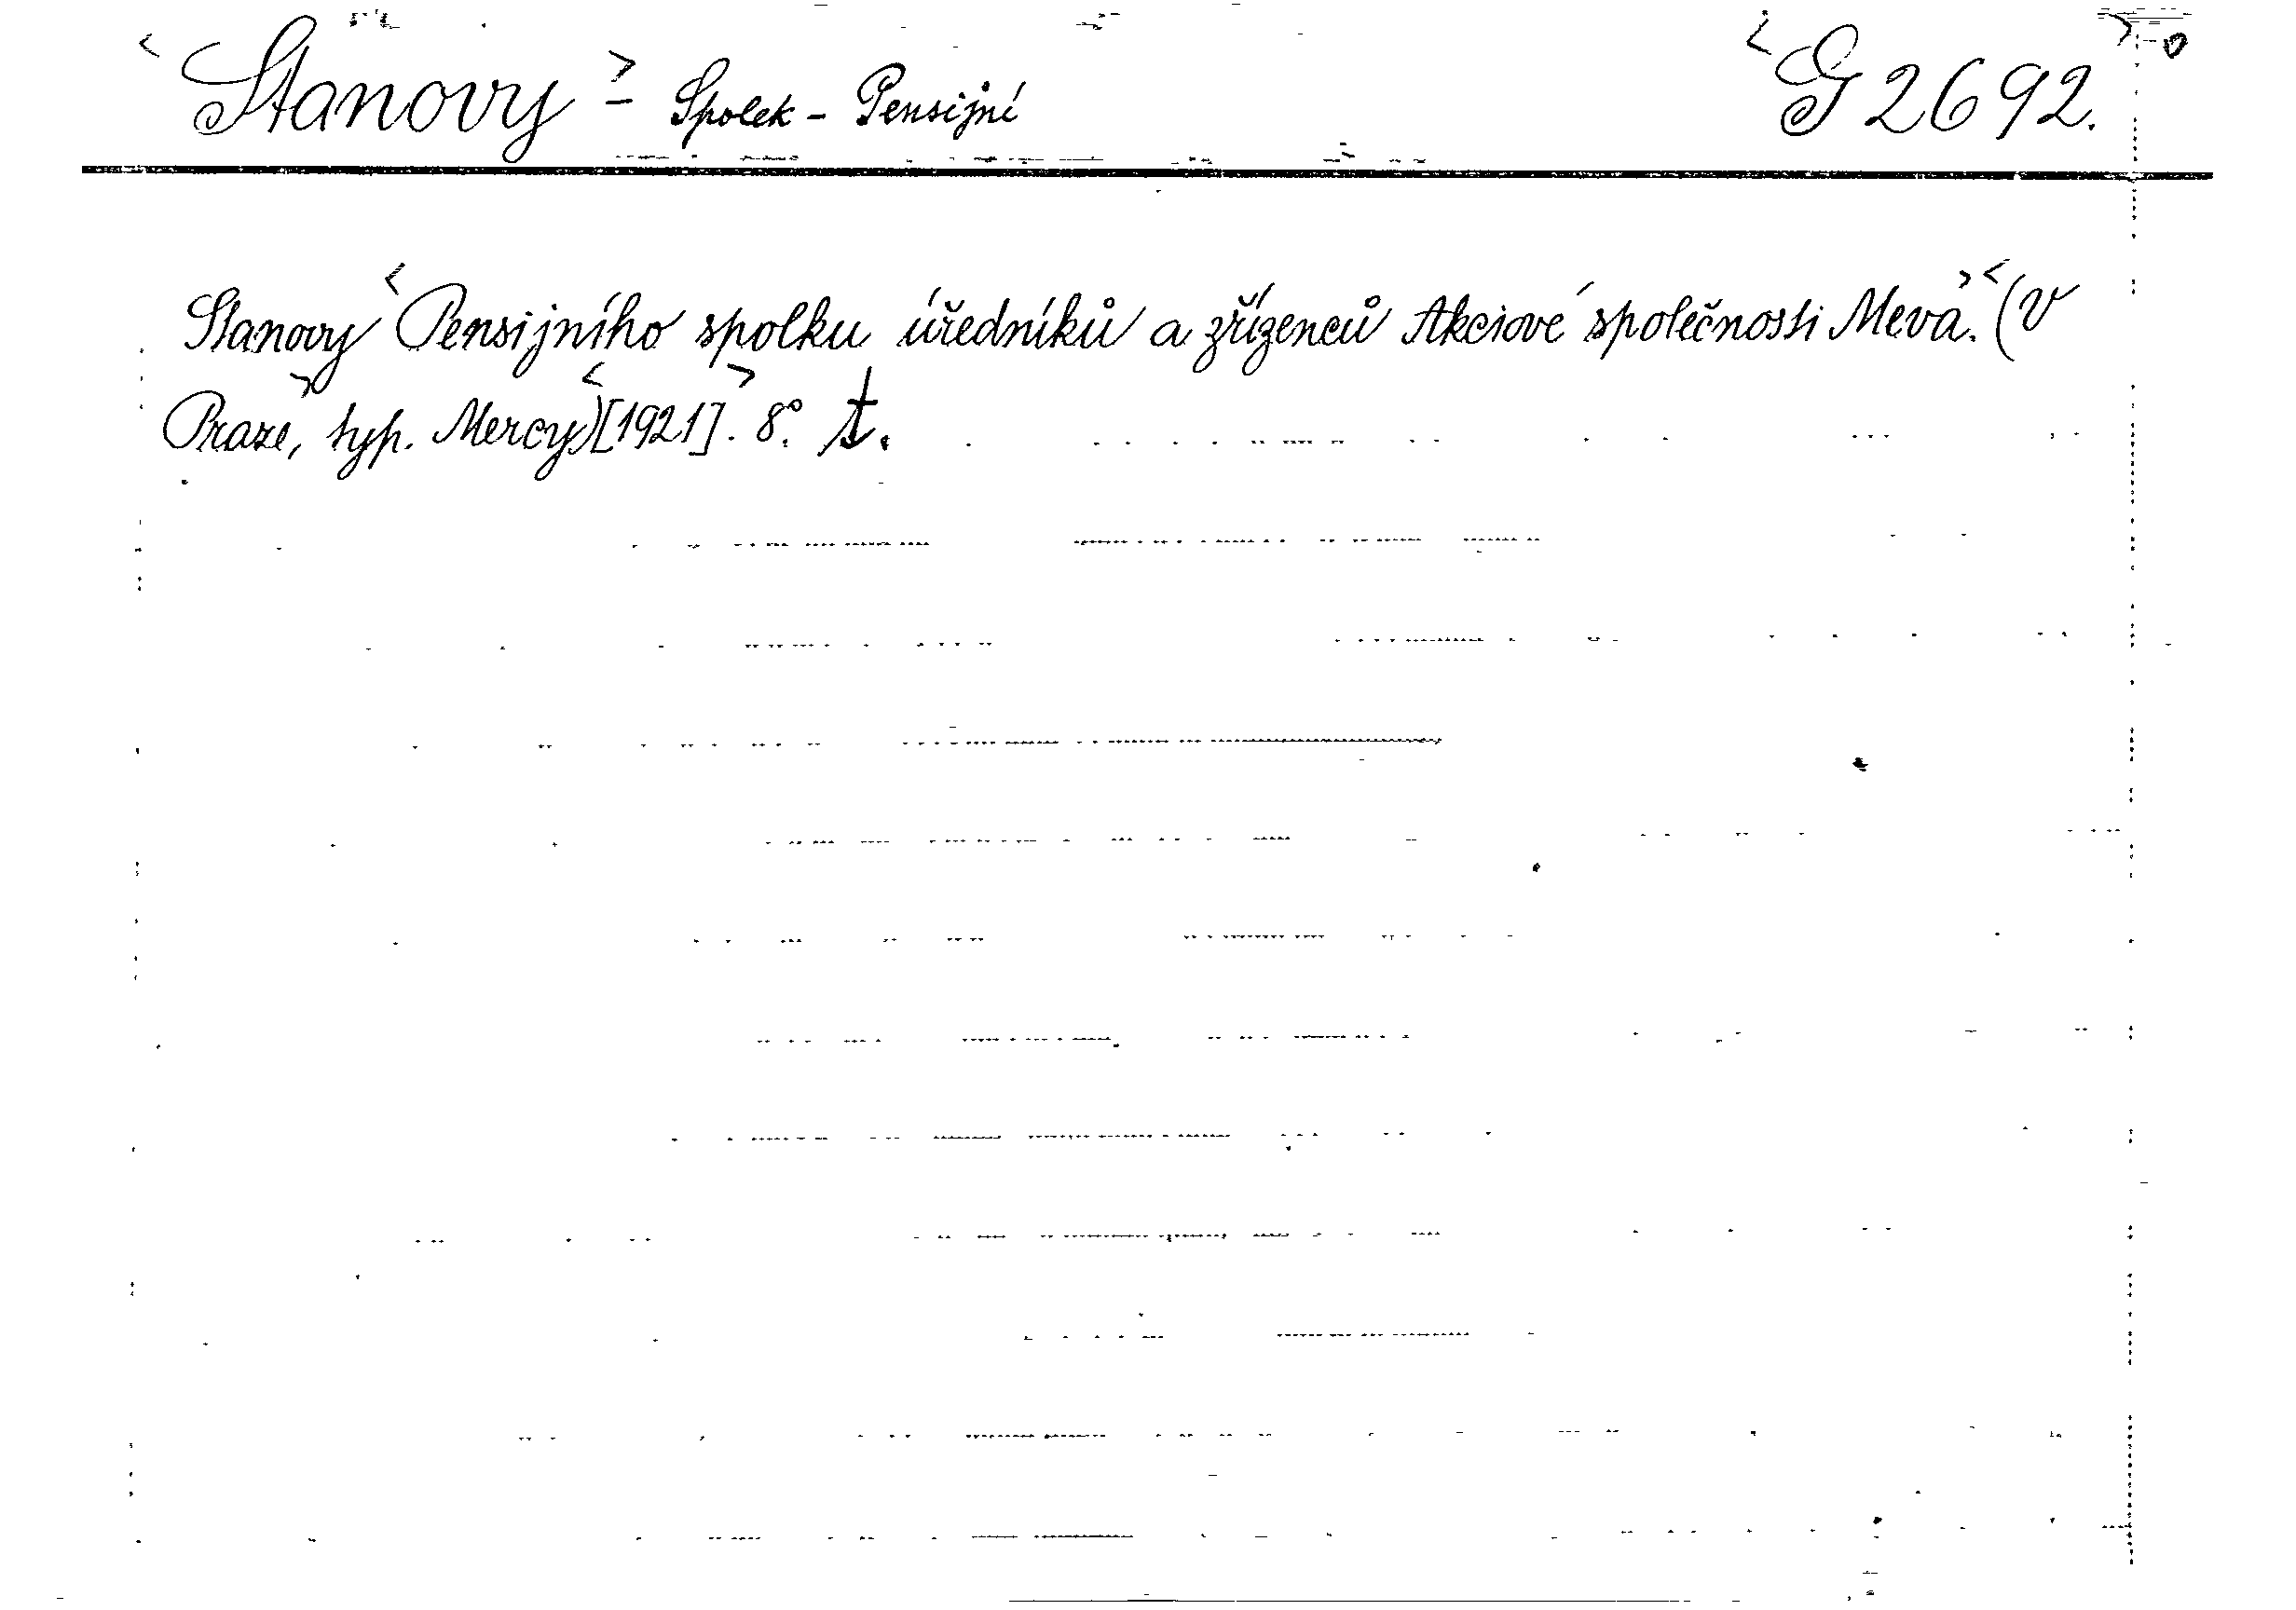 <Stanovy> - Spolek - Pensijní <G 2692.>
Stanovy <Pensijního spolku úředníků a zřízenců Akciové společnosti Meva.> <(V
Praze,> typ. Mercy)<[1921]>. 8°. t.